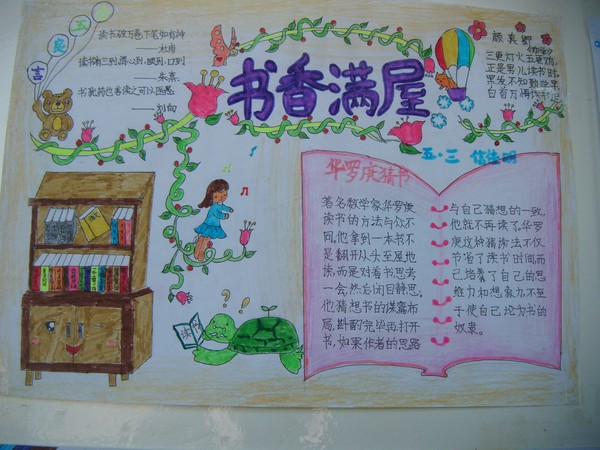 读书破万卷下笔如有神
——杜甫
读书有三到谓心到、眼到、口到
——朱熹
书犹药也善读之可以医愚
——刘向
书香满屋
颜真卿
《劝学》
三更灯火五更鸡
正是男儿读书时
黑发不知勤学早
白首方悔读书迟
五·三
华罗庚猜书
著名数学家华罗庚
读书的方法与众不
同。他拿到一本书不
是翻开从头至尾地
读,而是对着书思考
一会,然后闭目静思。
他猜想书的谋篇布
局,斟酌完毕再打开
书,如果作者的思路
与自己猜想的一致,
他就不再读了。华罗
庚这种猜读法不仅
节省了读书时间,而
己培养了自己的思
维力和想象力,不至
于使自己沦为书的
奴隶。
读书